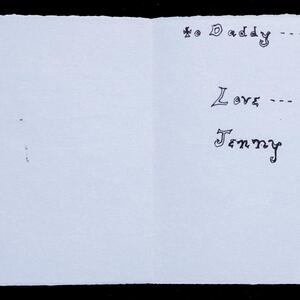 to Daddy ---
Love ---
Jenny